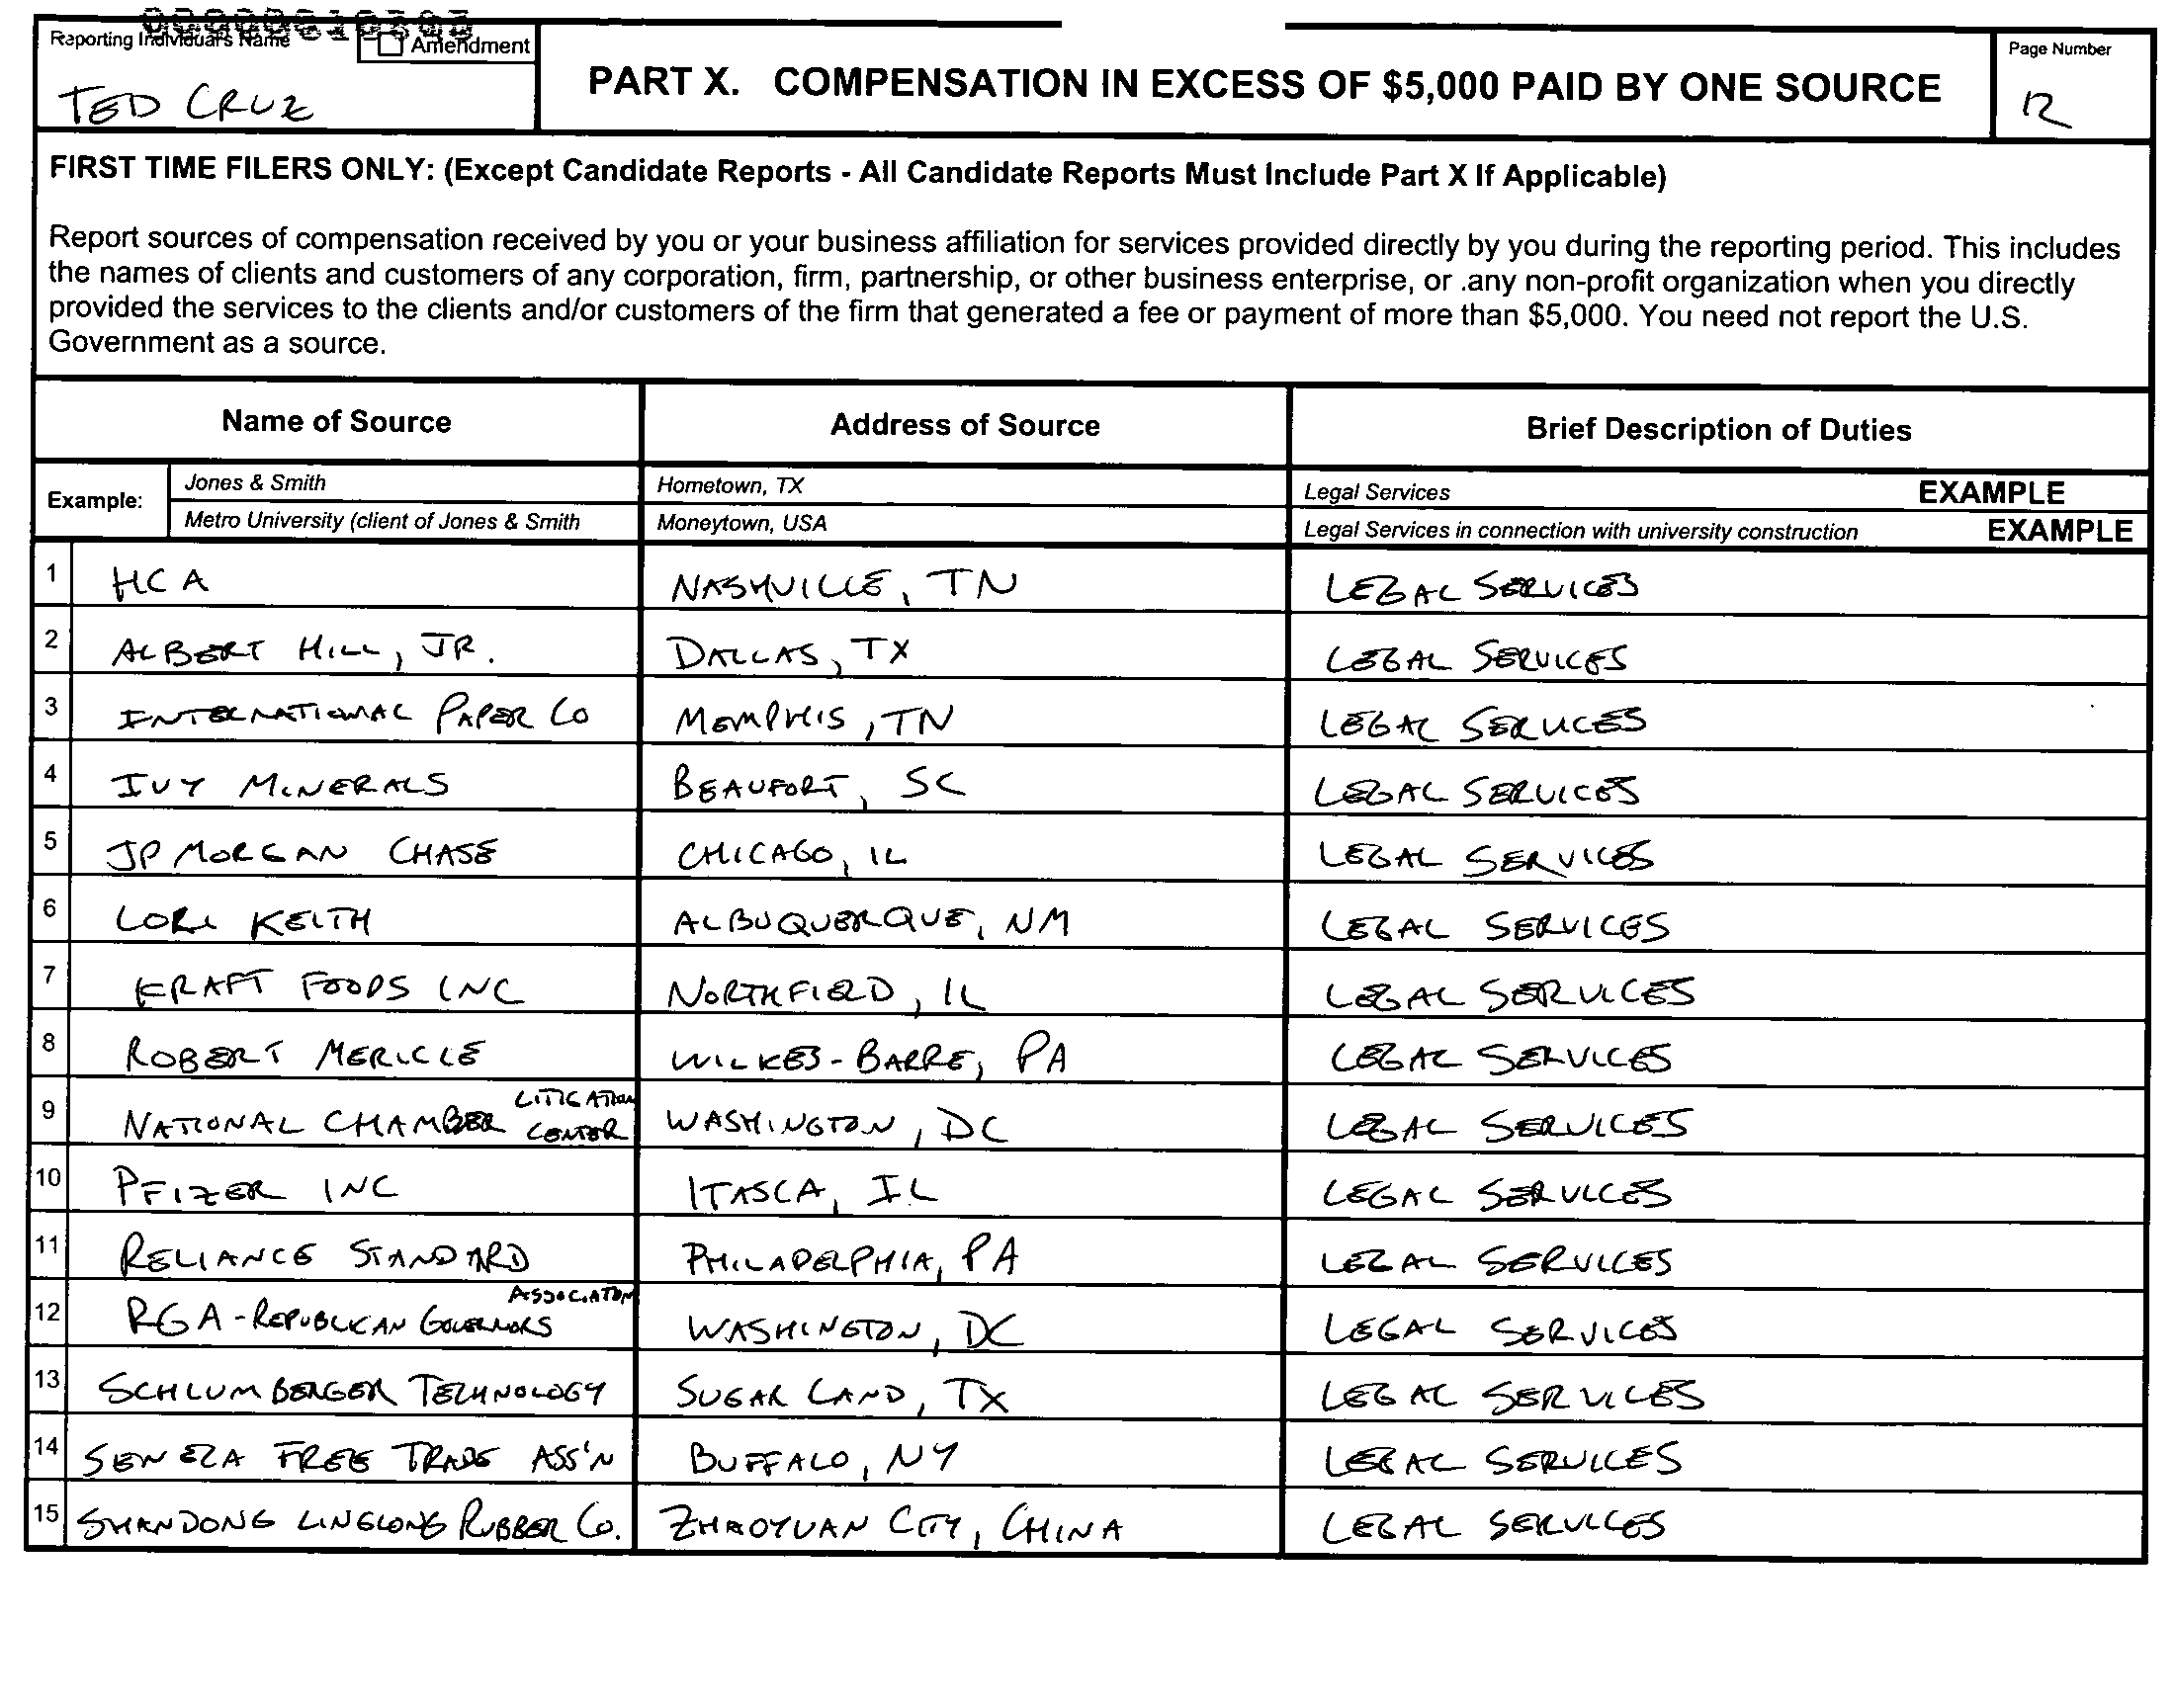 Reporting Individual's Name
Amendment
TED CRUZ
PART X. COMPENSATION IN EXCESS OF $5,000 PAID BY ONE SOURCE
Page Number
12
FIRST TIME FILERS ONLY: (Except Candidate Reports - All Candidate Reports Must Include Part X If Applicable)
Report sources of compensation received by you or your business affiliation for services provided directly by you during the reporting period. This includes
the names of clients and customers of any corporation, firm, partnership, or other business enterprise, or .any non-profit organization when you directly
provided the services to the clients and/or customers of the firm that generated a fee or payment of more than $5,000. You need not report the U.S.
Government as a source.
Name of Source Address of Source Brief Description of Duties
Example: Jones & Smith Hometown, TX Legal Services EXAMPLE
Metro University (client of Jones & Smith Moneytown, USA Legal Services in connection with university construction EXAMPLE
1 HCA NASHVILLE, TN LEGAL SERVICES
2 ALBERT HILL, JR. DALLAS, TX LEGAL SERVICES
3 INTERNATIONAL PAPER CO MEMPHIS, TN LEGAL SERVICES
4 IVY MINERALS BEAUFORT, SC LEGAL SERVICES
5 JP MORGAN CHASE CHICAGO, IL LEGAL SERVICES
6 LORI KEITH ALBUQUERQUE, NM LEGAL SERVICES
7 KRAFT FOODS INC NORTHFIELD, IL LEGAL SERVICES
8 ROBERT MERICLE WILKES-BARRE, PA LEGAL SERVICES
9 NATIONAL CHAMBER LITIGATION CENTER WASHINGTON, DC LEGAL SERVICES
10 PFIZER INC ITASCA, IL LEGAL SERVICES
11 RELIANCE STANDARD PHILADELPHIA, PA LEGAL SERVICES
12 RGA - REPUBLICAN GOVERNORS ASSOCIATION WASHINGTON, DC LEGAL SERVICES
13 SCHLUMBERGER TECHNOLOGY SUGAR LAND, TX LEGAL SERVICES
14 SENECA FREE TRADE ASS'N BUFFALO, NY LEGAL SERVICES
15 SHANDONG LINGLONG RUBBER CO. ZHAOYUAN CITY, CHINA LEGAL SERVICES